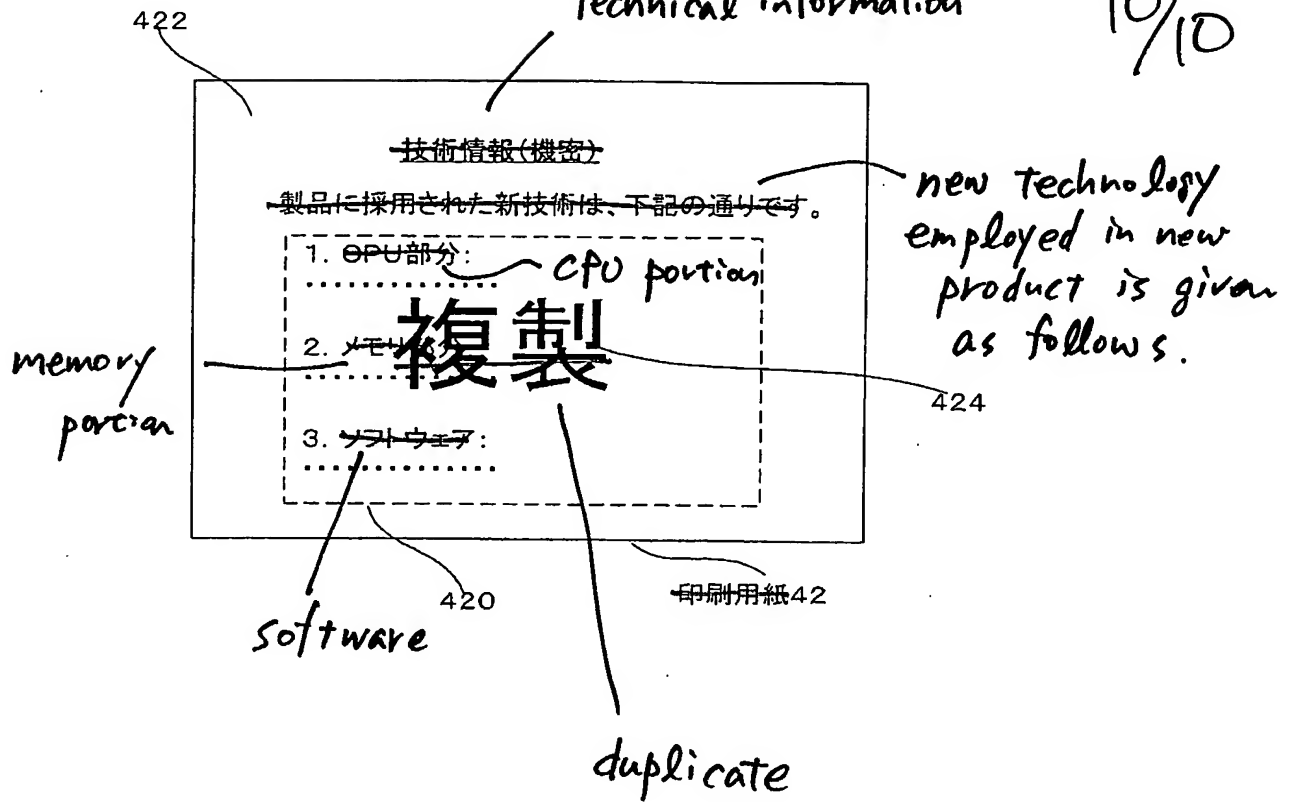 technical information
10/10
422
技術情報(機密)
製品に採用された新技術は、下記の通りです。
new technology
employed in new
product is given
as follows.
1. CPU部分:
CPU portion
複製
2. メモリ部分
memory
portion
424
3. ソフトウェア:
420
印刷用紙42
software
duplicate